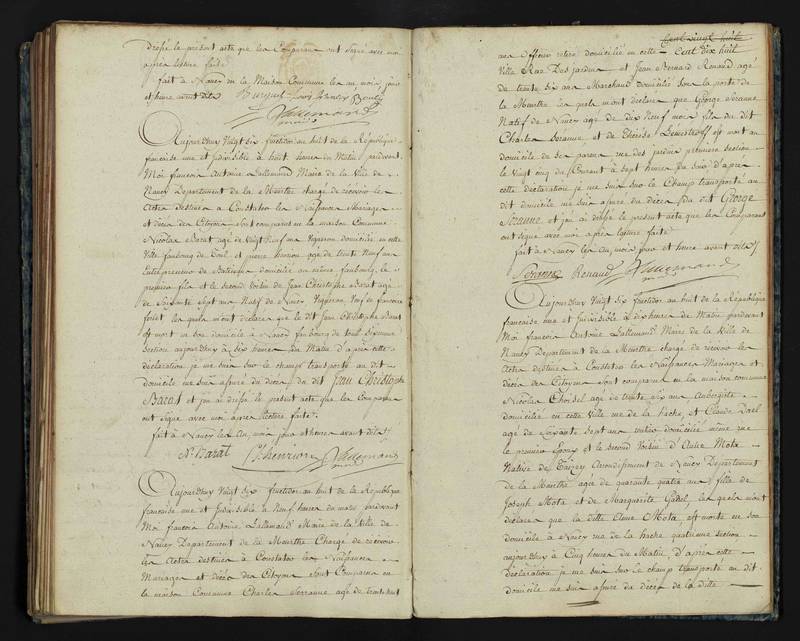 Dressé le présent acte que les Comparans ont signé avec moi
après lecture faite
fait à Nancy en la Maison Commune les an mois, jour
et heure avant dits
Lallemand
Aujourd'huy Vingt Six fructidor an huit de la République
francoise une et indivisible à huit heures du Matin pardevant
Moi françois Antoine Lallemand Maire de la Ville de
Nancy Département de la Meurthe chargé de recevoir les
Actes destinés à Constater les Naissances Mariages
et décès des Citoyens sont comparus en la maison Commune
Nicolas Barat agé de Vingt Neuf ans Vigneron domicilié en cette
Ville faubourg de Toul et pierre henrion agé de trente Neuf ans
Entrepreneur de Batisses domicilié au même faubourg, le
premier fils et le second Voisin de Jean Christophe Barat agé
de Soixante Sept ans Natif de Nancy Vigneron Veuf de francoise
lesquels m'ont déclaré que le dit Jean Christophe Barat
est mort en son domicile à Nancy faubourg de toul
Section aujourd'huy à dix heures du Matin d'après cette
déclaration je me suis sur le champ transporté au dit
Domicile me suis assuré du décès du dit Jean Christophe
Barat et j'en ai dressé le présent acte que les Comparans
ont signé avec moi après lecture faite.
fait à Nancy les An, mois jour et heure avant dits
N. Barat P. henrion Lallemand
Aujourd'huy Vingt Six fructidor an huit de la République
francoise une et Indivisible à Neuf heures du matin pardevant
Moi francois Antoine Lallemand Maire de la Ville de
Nancy Département de la Meurthe Chargé de recevoir
les Actes destinés à Constater les Naissances
Mariages et décès des Citoyens Sont Comparus en
la maison Commune Charles Soranne agé de trente huit
Cent vingt huit
ans Officier retiré domicilié en cette Cent dix huit
Ville Rue Des Jardins et Jean Bernard Renaud agé
de trente six ans Marchand domicilié sous la porte de
la Meurthe lesquels m'ont déclaré que George Soranne
Natif de Nancy agé de dix Neuf mois fils du dit
Charles Soranne et de Thérèse est mort au
domicile de ses parens rue des jardins première section
le Vingt cinq du Courant à sept heures du soir d'après
cette déclaration je me suis sur le Champ transporté au
dit domicile me suis assuré du décès du dit George
Soranne et j'en ai dressé le présent acte que les Comparans
ont signé avec moi après lecture faite
fait à Nancy les an, mois jour et heure avant dits
Soranne Renaud Lallemand
Aujourd'huy Vingt six fructidor an huit de la République
francoise une et Indivisible à dix heures du Matin pardevant
Moi francois Antoine Lallemand Maire de la Ville de
Nancy Département de la Meurthe chargé de recevoir les
Actes destinés à Constater les Naissances Mariages et
décès des Citoyens sont comparus en la maison commune
Nicolas agé de trente six ans Aubergiste
domicilié en cette Ville rue de la hache, et Claude
agé de Soixante sept ans domicilié même rue
le premier Epoux et le second Voisin d'Anne Mota
Native de Arrondissement de Nancy Département
de la Meurthe agée de quarante quatre ans fille de
Joseph Mota et de Marguerite lesquels m'ont
déclaré que la ditte Anne Mota, est morte en son
domicile à Nancy rue de la hache quatrieme section
aujourd'huy à Cinq heures du Matin D'après cette
déclaration je me suis sur le champ transporté au dit
domicile me suis assuré du décès de la ditte